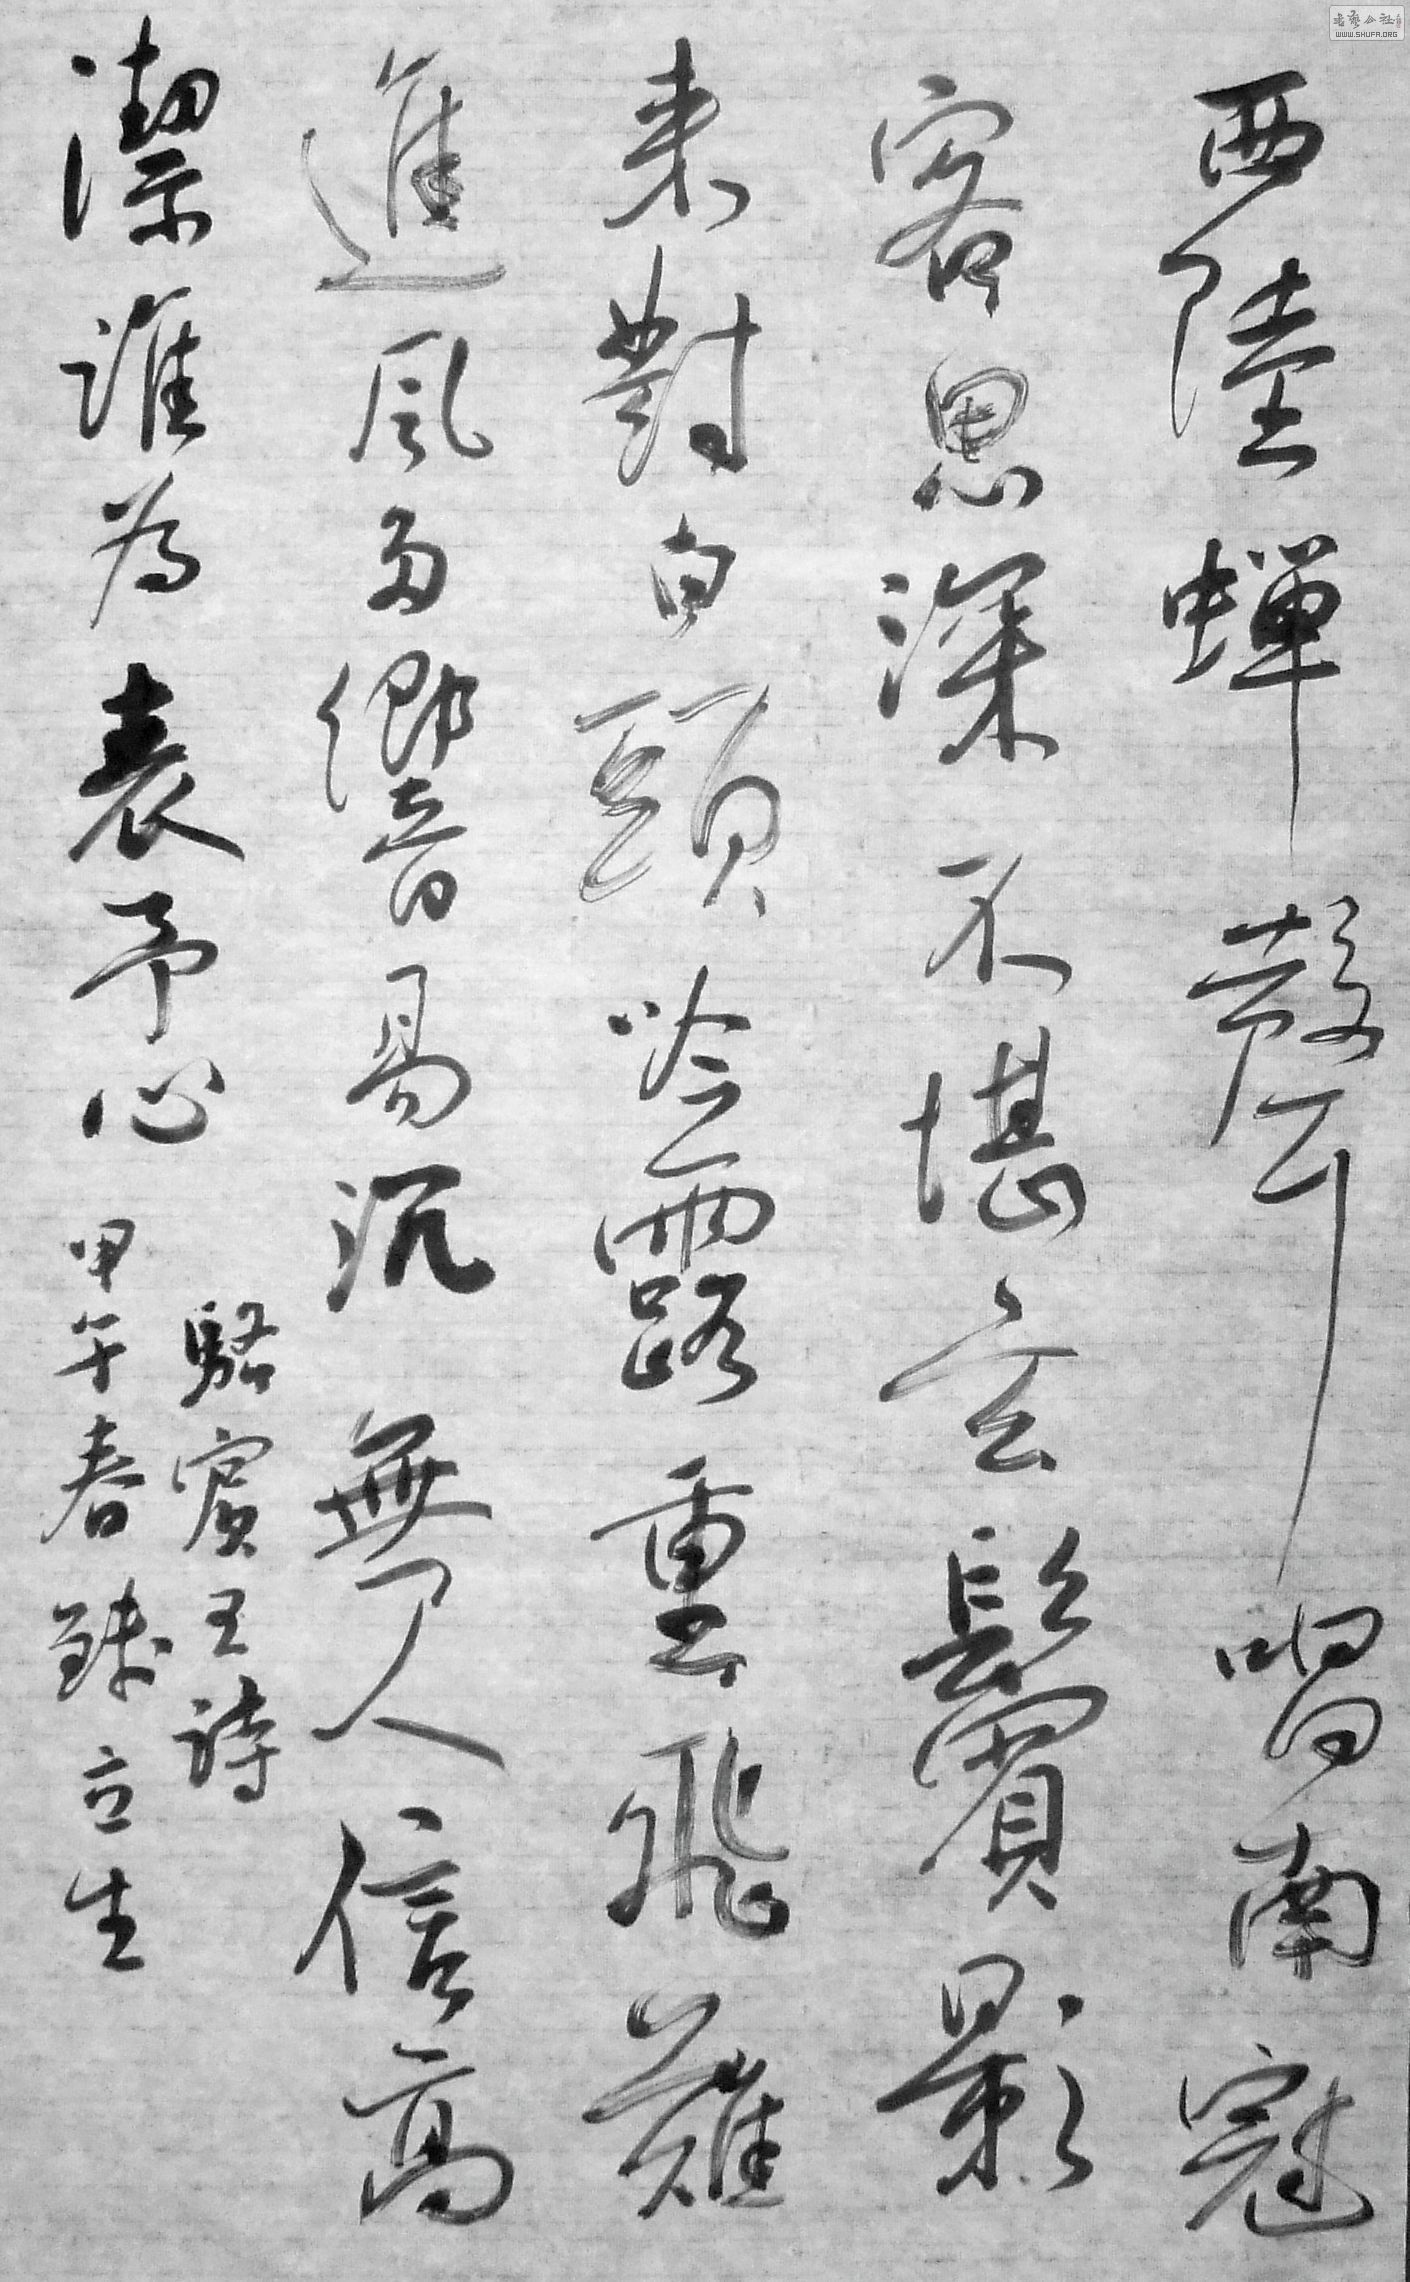 西陸蟬聲唱南冠
客思深不堪玄鬢影
来對白頭吟露重飛難
進風多響易沉無人信高
潔誰為表予心
駱賓王詩
甲午春 立生
書藝公社
WWW.SHUFA.ORG